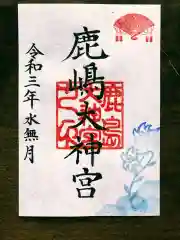 鹿嶋大神宮
令和三年 水無月